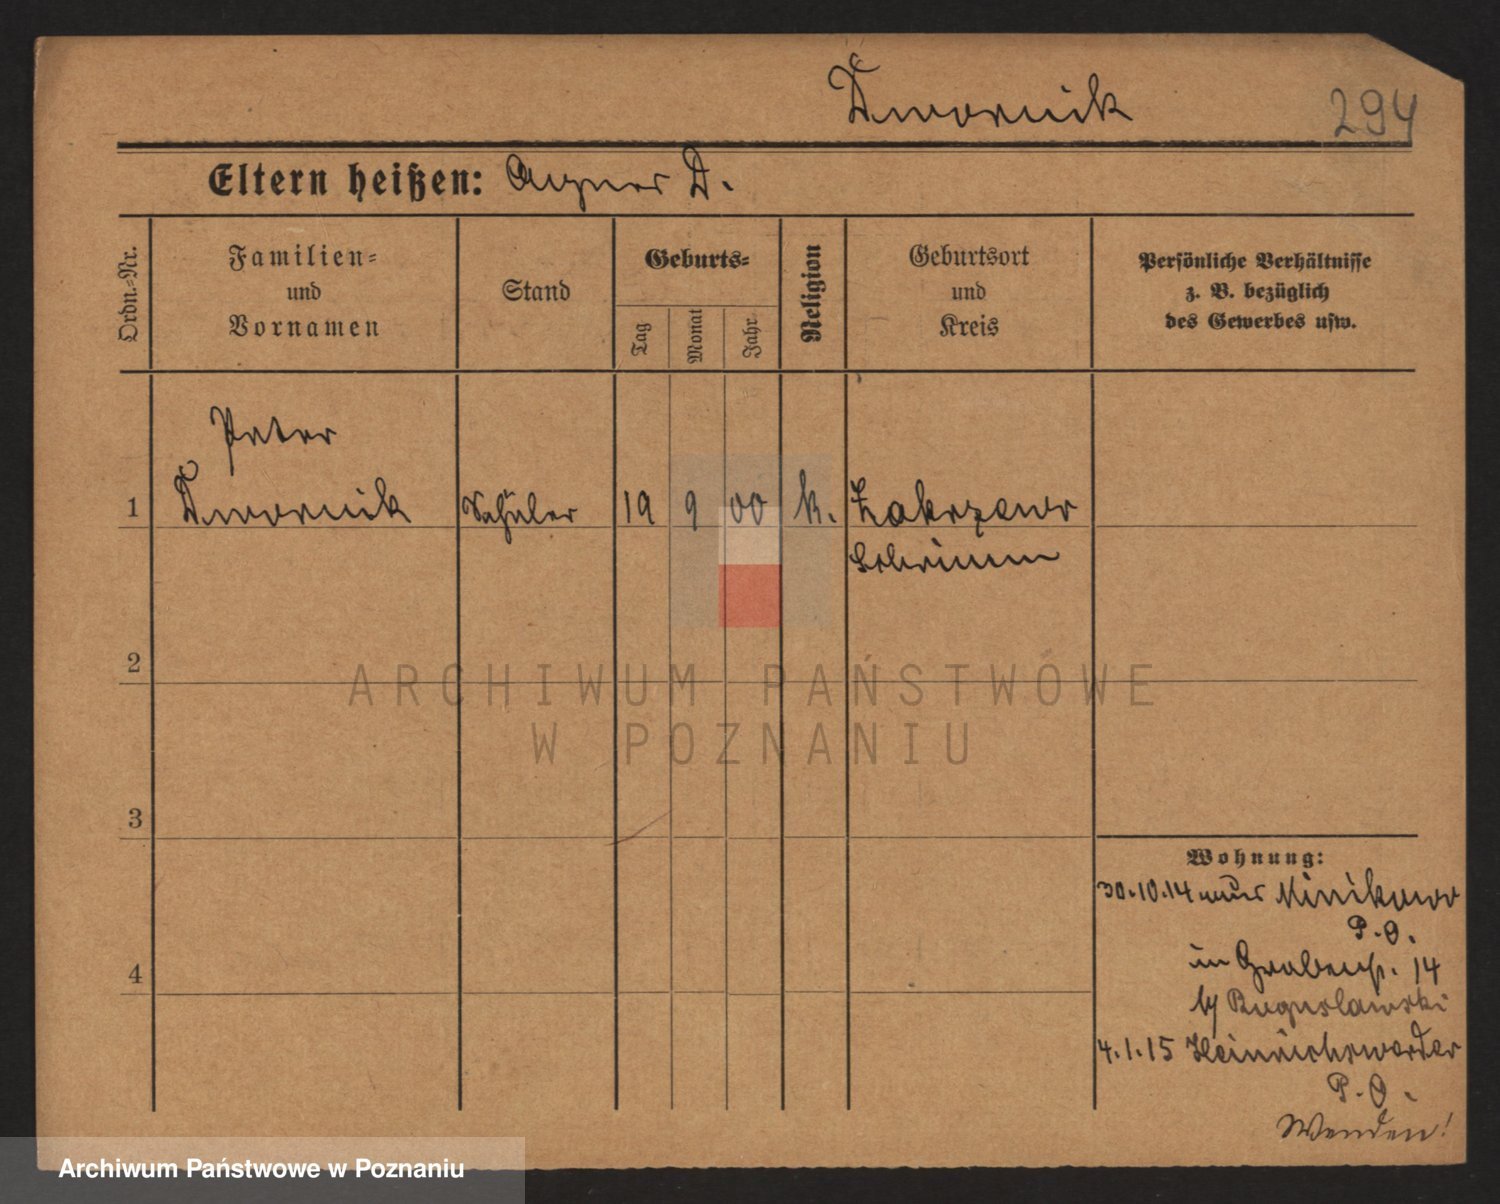 Dwornik
294
Eltern heißen: Agnes D.
Ordn.-Nr.
Familien-
und
Vornamen
Stand
Geburts-
Tag
Monat
Jahr
Religion
Geburtsort
und
Kreis
Persönliche Verhältnisse
z. B. bezüglich
des Gewerbes usw.
Peter
1 Dwornik Schüler 19 9 00 k. Zakrzewo
Schrimm
2
3
4
Wohnung:
30.10.14 aus Minikowo
P. O.
in Grabenstr. 14
b/ Boguslawski
4.1.15 Heinrichswerder
P. O.
Wenden!
ARCHIWUM PAŃSTWOWE
W POZNANIU
Archiwum Państwowe w Poznaniu